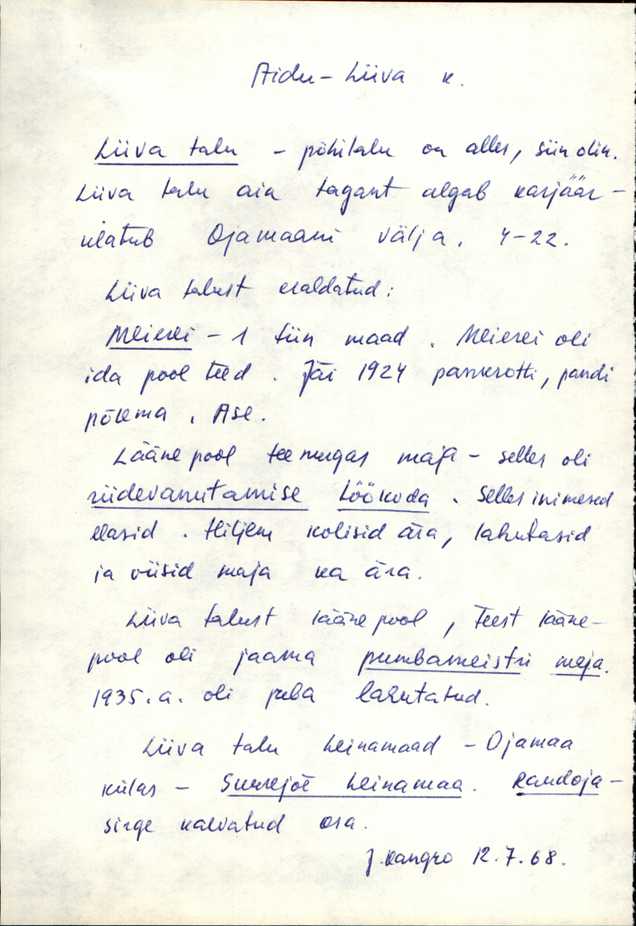 Aidu-Liiva k.
Liiva talu - põhitalu on alles, siin olin.
Liiva talu aia tagant algab karjäär -
ulatub Ojamaani välja. 4-22.
Liiva talust eraldatud:
Meierei - 1 tiin maad. Meierei oli
ida pool teed. Jäi 1924 pankrotti, pandi
põlema. Ase.
Lääne pool tee nurgas maja - selles oli
riidevanutamise töökoda. Selles inimesed
elasid. Hiljem kolisid ära, lahutasid
ja viisid maja ka ära.
Liiva talust lääne pool, teest lääne-
pool oli jaama pumbameistri maja.
1935.a. oli juba lahutatud.
Liiva talu heinamaad - Ojamaa
külas - Suurejõe heinamaa. Raudoja -
sirge kaevatud osa.
J. Kangro 12.7.68.